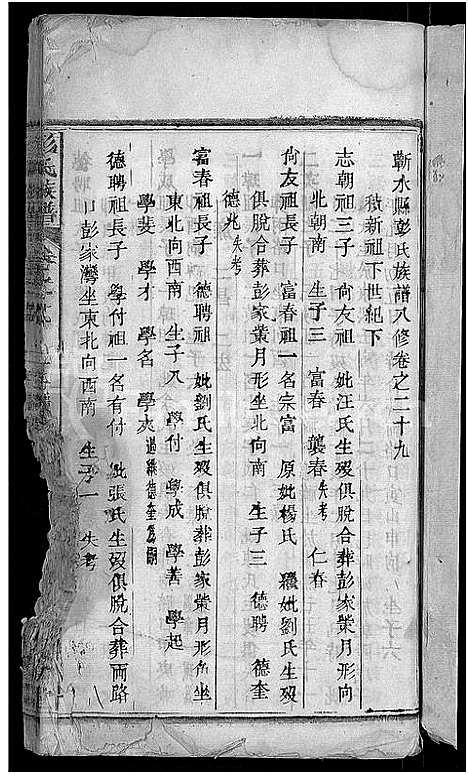 蘄水縣彭氏族譜八修卷之二十九
新祖下世紀下
志朝祖三子 尚友祖 妣汪氏生歿俱脫合葬彭家業月形向
北朝南 生子三 富春 襲春失考 仁春
尚友祖長子 富春祖一名宗富 原妣楊氏 繼妣劉氏生歿
俱脫合葬彭家業月形坐北向南 生子三 德聘 德奎
德兆失考
富春祖長子 德聘祖 妣劉氏生歿俱脫葬彭家業月形角坐
東北向西南 生子八 學付 學成 學善 學起
學斐 學才 學名 學夾過繼德奎為嗣
德聘祖長子 學付祖一名有付 妣張氏生歿俱脫合葬兩路
口彭家灣坐東北向西南 生子一 失考
彭氏族譜